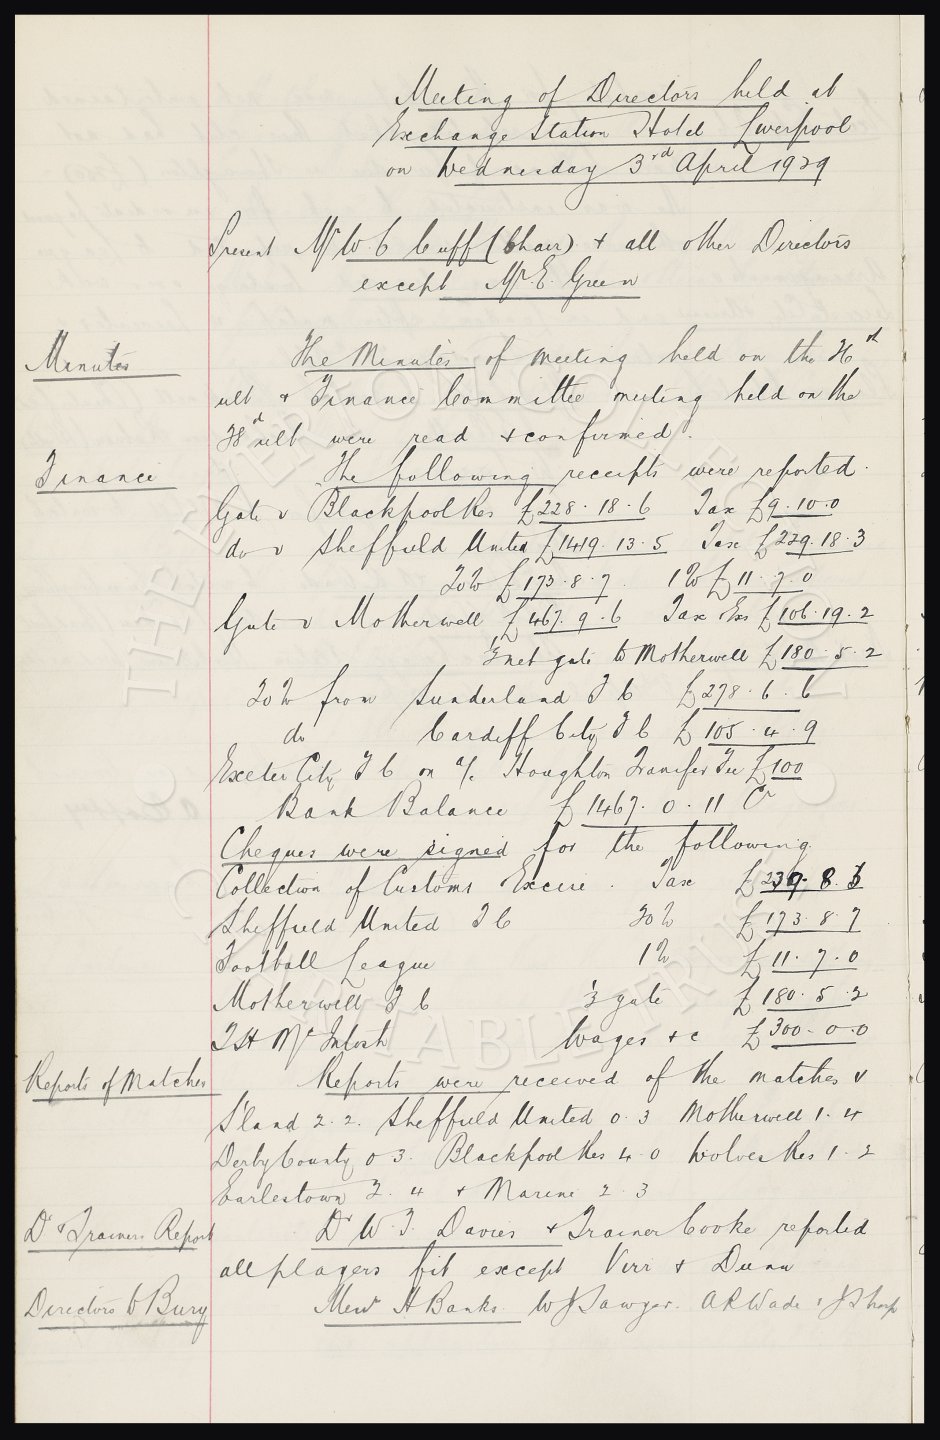 Meeting of Directors held at
Exchange Station Hotel Liverpool
on Wednesday 3rd April 1929
Present Mr W. C. Cuff (Chair) + all other Directors
except Mr E. Green
Minutes
The Minutes of meeting held on the 26th
ult + Finance Committee meeting held on the
28th ult were read + confirmed.
Finance
The following receipts were reported.
Gate v Blackpool Res £228. 18. 6 Tax £9. 10. 0
do v Sheffield United £1419. 13. 5 Tax £229. 18. 3
20% £173. 8. 7 1% £11. 7. 0
Gate v Motherwell £467. 9. 6 Tax + Exs £106. 19. 2
½ net gate to Motherwell £180. 5. 2
20% from Sunderland F C £278. 6. 6
do Cardiff City F C £105. 4. 9
Exeter City F C on a/c Houghton Transfer Fee £100
Bank Balance £1467. 0. 11 Cr
Cheques were signed for the following.
Collection of Customs Excise. Tax £239. 8. 3
Sheffield United F C 20% £173. 8. 7
Football League 1% £11. 7. 0
Motherwell F C ½ gate £180. 5. 2
T H McIntosh Wages + c £300. 0. 0
Reports of Matches
Reports were received of the matches v
S'land 2. 2. Sheffield United 0. 3 Motherwell 1. 4
Derby County 0 3. Blackpool Res 4. 0 Wolves Res 1. 2
Earlestown 2. 4 + Marine 2. 3
Dr + Trainers Report
Dr W. F. Davies + Trainer Cooke reported
all players fit except Virr + Dunn
Directors to Bury
Messrs H Banks W J Sawyer. A R Wade + J Sharp
THE EVERTON COLLECTION
CHARITABLE TRUST